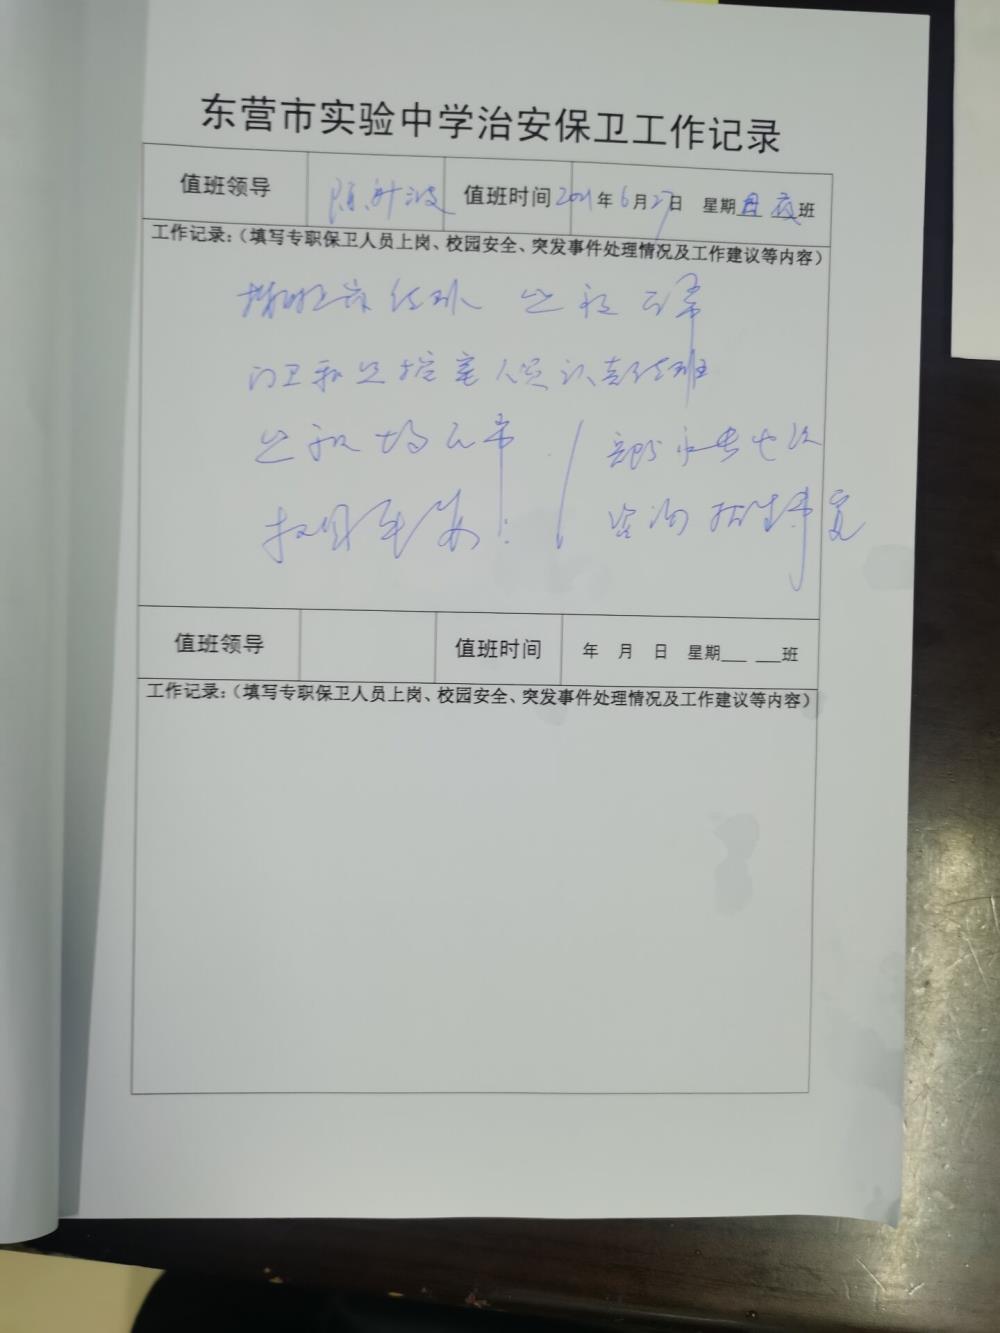 东营市实验中学治安保卫工作记录
值班领导 陈 波 值班时间 2021年6月27日 星期日 夜班
工作记录：（填写专职保卫人员上岗、校园安全、突发事件处理情况及工作建议等内容）
正常
门卫和监控室人员认真值班
正常
部分家长
咨询招生事宜
值班领导 值班时间 年 月 日 星期___ ___班
工作记录：（填写专职保卫人员上岗、校园安全、突发事件处理情况及工作建议等内容）